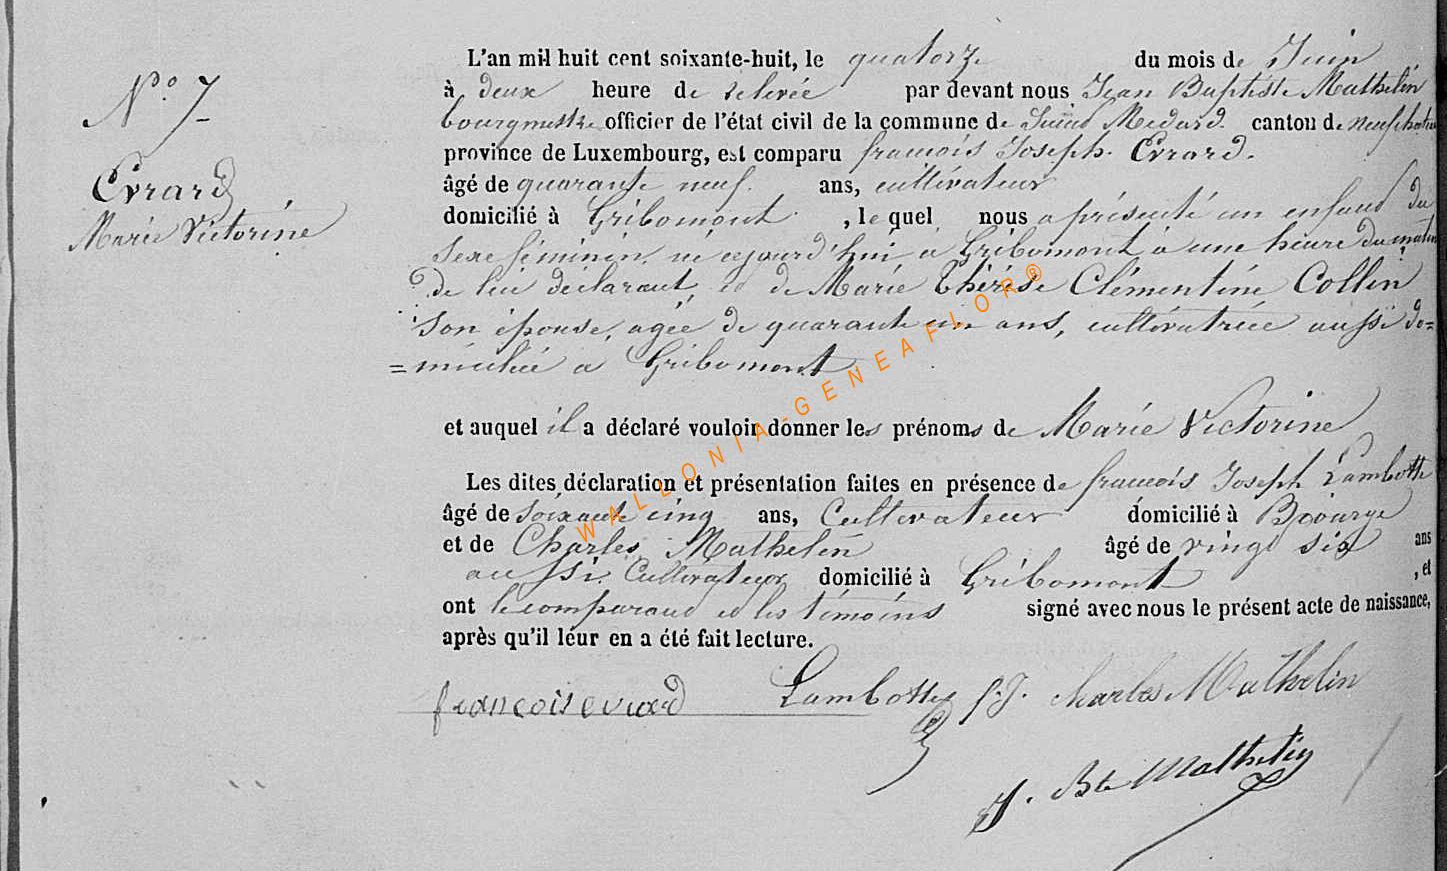 N.o 7
Evrard
Marie Victorine
L'an mil huit cent soixante-huit, le quatorze du mois de Juin
à deux heure de relevée par devant nous Jean Baptiste Mathelin
bourgmestre officier de l'état civil de la commune de Saint Medard canton de Neufchateau
province de Luxembourg, est comparu françois Joseph Evrard.
âgé de quarante neuf ans, cultivateur
domicilié à Gribomont, lequel nous a présenté un enfant du
sexe féminin, né cejourd'hui à Gribomont à une heure du matin
de lui déclarant, et de Marie Thérèse Clémentine Collin
son épouse, agée de quarante un ans, cultivatrice aussi do=
=miciliée a Gribomont
et auquel il a déclaré vouloir donner les prénoms de Marie Victorine
Les dites déclaration et présentation faites en présence de françois Joseph Lambotte
âgé de soixante cinq ans, Cultivateur domicilié à Biourge
et de Charles Mathelin âgé de vingt six ans
aussi Cultivateur domicilié à Gribomont, et
ont le comparant et les témoins signé avec nous le présent acte de naissance,
après qu'il leur en a été fait lecture.
françois evrard Lambotte f.J. charles Mathelin
J. Bte Mathelin
WALLONIA-GENEAFLOR®